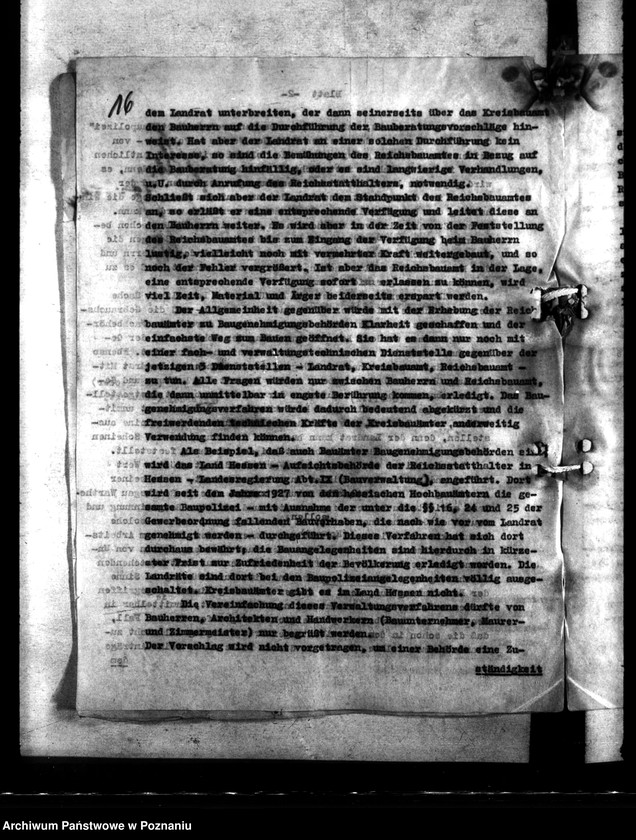 16
Blatt -2-
dem Landrat unterbreiten, der dann seinerseits über das Kreisbauamt
den Bauherrn auf die Durchführung der Bauberatungsvorschläge hin-
weist. Hat aber der Landrat an einer solchen Durchführung kein
Interesse, so sind die Bemühungen des Reichsbauamtes in Bezug auf
die Bauberatung hinfällig, oder es sind langwierige Verhandlungen,
u.U. durch Anrufung des Reichsstatthalters, notwendig.
Schließt sich aber der Landrat den Standpunkt des Reichsbauamtes
an, so erläßt er eine entsprechende Verfügung und leitet diese an
den Bauherrn weiter. Es wird aber in der Zeit von der Feststellung
des Reichsbauamtes bis zum Eingang der Verfügung beim Bauherrn
lustig, vielleicht noch mit vermehrter Kraft weitergebaut, und so
noch der Fehler vergrößert. Ist aber das Reichsbauamt in der Lage,
eine entsprechende Verfügung sofort erlassen zu können, wird
viel Zeit, Material und Ärger beiderseits erspart werden.
Der Allgemeinheit gegenüber würde mit der Erhebung der Reichs
bauämter zu Baugenehmigungsbehörden Klarheit geschaffen und der
einfachste Weg zum Bauen geöffnet. Sie hat es dann nur noch mit
einer fach- und verwaltungstechnischen Dienststelle gegenüber der
jetzigen 3 Dienststellen - Landrat, Kreisbauamt, Reichsbauamt -
zu tun. Alle Fragen würden nur zwischen Bauherrn und Reichsbauamt,
die dann unmittelbar in engste Berührung kommen, erledigt. Das Bau-
genehmigungsverfahren würde dadurch bedeutend abgekürzt und die
freiwerdenden technischen Kräfte der Kreisbauämter anderweitig
Verwendung finden können.
Als Beispiel, daß auch Bauämter Baugenehmigungsbehörden sind
wird das Land Hessen - Aufsichtsbehörde der Reichsstatthalter in
Hessen - Landesregierung Abt.IX (Bauverwaltung), angeführt. Dort
wird seit dem Jahre 1927 von den hessischen Hochbauämtern die ge-
samte Baupolizei - mit Ausnahme der unter die §§ 16, 24 und 25 der
Gewerbeordnung fallenden Bauvorhaben, die nach wie vor vom Landrat
genehmigt werden - durchgeführt. Dieses Verfahren hat sich dort
durchaus bewährt, die Bauangelegenheiten sind hierdurch in kürze-
ster Frist zur Zufriedenheit der Bevölkerung erledigt worden. Die
Landräte sind dort bei den Baupolizeiangelegenheiten völlig ausge-
schaltet. Kreisbauämter gibt es in Land Hessen nicht.
Die Vereinfachung dieses Verwaltungsverfahrens dürfte von
Bauherren, Architekten und Handwerkern (Bauunternehmer, Maurer-
und Zimmermeister) nur begrüßt werden.
Der Vorschlag wird nicht vorgetragen, um einer Behörde eine Zu-
ständigkeit
Archiwum Państwowe w Poznaniu